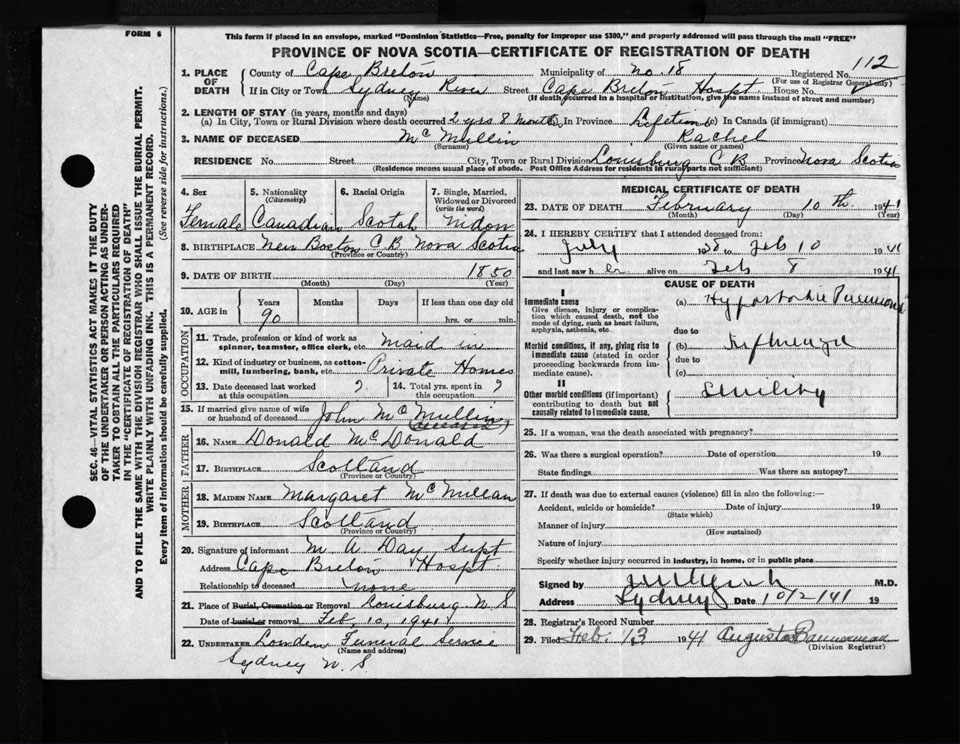 FORM 6
This form if placed in an envelope, marked "Dominion Statistics—Free, penalty for improper use $300," and properly addressed will pass through the mail "FREE"
PROVINCE OF NOVA SCOTIA—CERTIFICATE OF REGISTRATION OF DEATH
SEC. 46—VITAL STATISTICS ACT MAKES IT THE DUTY
OF THE UNDERTAKER OR PERSON ACTING AS UNDER-
TAKER TO OBTAIN ALL THE PARTICULARS REQUIRED
IN THE "CERTIFICATE OF REGISTRATION OF DEATH"
AND TO FILE THE SAME WITH THE DIVISION REGISTRAR WHO SHALL ISSUE THE BURIAL PERMIT.
WRITE PLAINLY WITH UNFADING INK. THIS IS A PERMANENT RECORD.
Every item of information should be carefully supplied. (See reverse side for instructions.)
1. PLACE OF DEATH County of Cape Breton Municipality of No. 18 Registered No. 112
(For use of Registrar General only)
If in City or Town Sydney River Street Cape Breton Hospt. House No.
(Name) (If death occurred in a hospital or institution, give the name instead of street and number)
2. LENGTH OF STAY (in years, months and days)
(a) In City, Town or Rural Division where death occurred 2 yrs 8 months In Province Lifetime In Canada (if immigrant)
3. NAME OF DECEASED McMullin Rachel
(Surname) (Given name or names)
RESIDENCE No. Street City, Town or Rural Division Louisburg C B Province Nova Scotia
(Residence means usual place of abode. Post Office Address for residents in rural parts not sufficient)
4. Sex Female
5. Nationality (Citizenship) Canadian
6. Racial Origin Scotch
7. Single, Married, Widowed or Divorced (write the word) Widow
8. BIRTHPLACE New Boston C B Nova Scotia
(Province or Country)
9. DATE OF BIRTH 1850
(Month) (Day) (Year)
10. AGE in Years 90 Months Days If less than one day old
hrs. or min.
OCCUPATION
11. Trade, profession or kind of work as spinner, teamster, office clerk, etc. maid in
12. Kind of industry or business, as cotton-mill, lumbering, bank, etc. Private Homes
13. Date deceased last worked at this occupation ? 14. Total yrs. spent in this occupation ?
15. If married give name of wife or husband of deceased John McMullin
(deceased)
FATHER
16. NAME Donald McDonald
17. BIRTHPLACE Scotland
(Province or Country)
MOTHER
18. MAIDEN NAME Margaret McMullan
19. BIRTHPLACE Scotland
(Province or Country)
20. Signature of informant M A Day Supt
Address Cape Breton Hospt.
Relationship to deceased none
21. Place of Burial, Cremation or Removal Louisburg N S
Date of burial or removal Feb, 10, 1941
22. UNDERTAKER London Funeral Service
(Name and address)
Sydney N. S
MEDICAL CERTIFICATE OF DEATH
23. DATE OF DEATH February 10th 1941
(Month) (Day) (Year)
24. I HEREBY CERTIFY that I attended deceased from:
July 1938 to Feb 10 1941
and last saw her alive on Feb 8 1941
CAUSE OF DEATH
I
Immediate cause (a) Hypostatic
Give disease, injury or complication which caused death, not the mode of dying, such as heart failure, asphyxia, asthenia, etc.
due to
Morbid conditions, if any, giving rise to immediate cause (stated in order proceeding backwards from immediate cause). (b) Influenza
due to
(c)
II
Other morbid conditions (if important) contributing to death but not causally related to immediate cause. Senility
25. If a woman, was the death associated with pregnancy?
26. Was there a surgical operation? Date of operation 19
State findings Was there an autopsy?
27. If death was due to external causes (violence) fill in also the following:—
Accident, suicide or homicide? Date of injury 19
(State which)
Manner of injury
(How sustained)
Nature of injury
Specify whether injury occurred in industry, in home, or in public place
Signed by M.D.
Address Sydney Date 10/2/41 19
28. Registrar's Record Number
29. Filed Feb. 13 1941 Augusta
(Division Registrar)